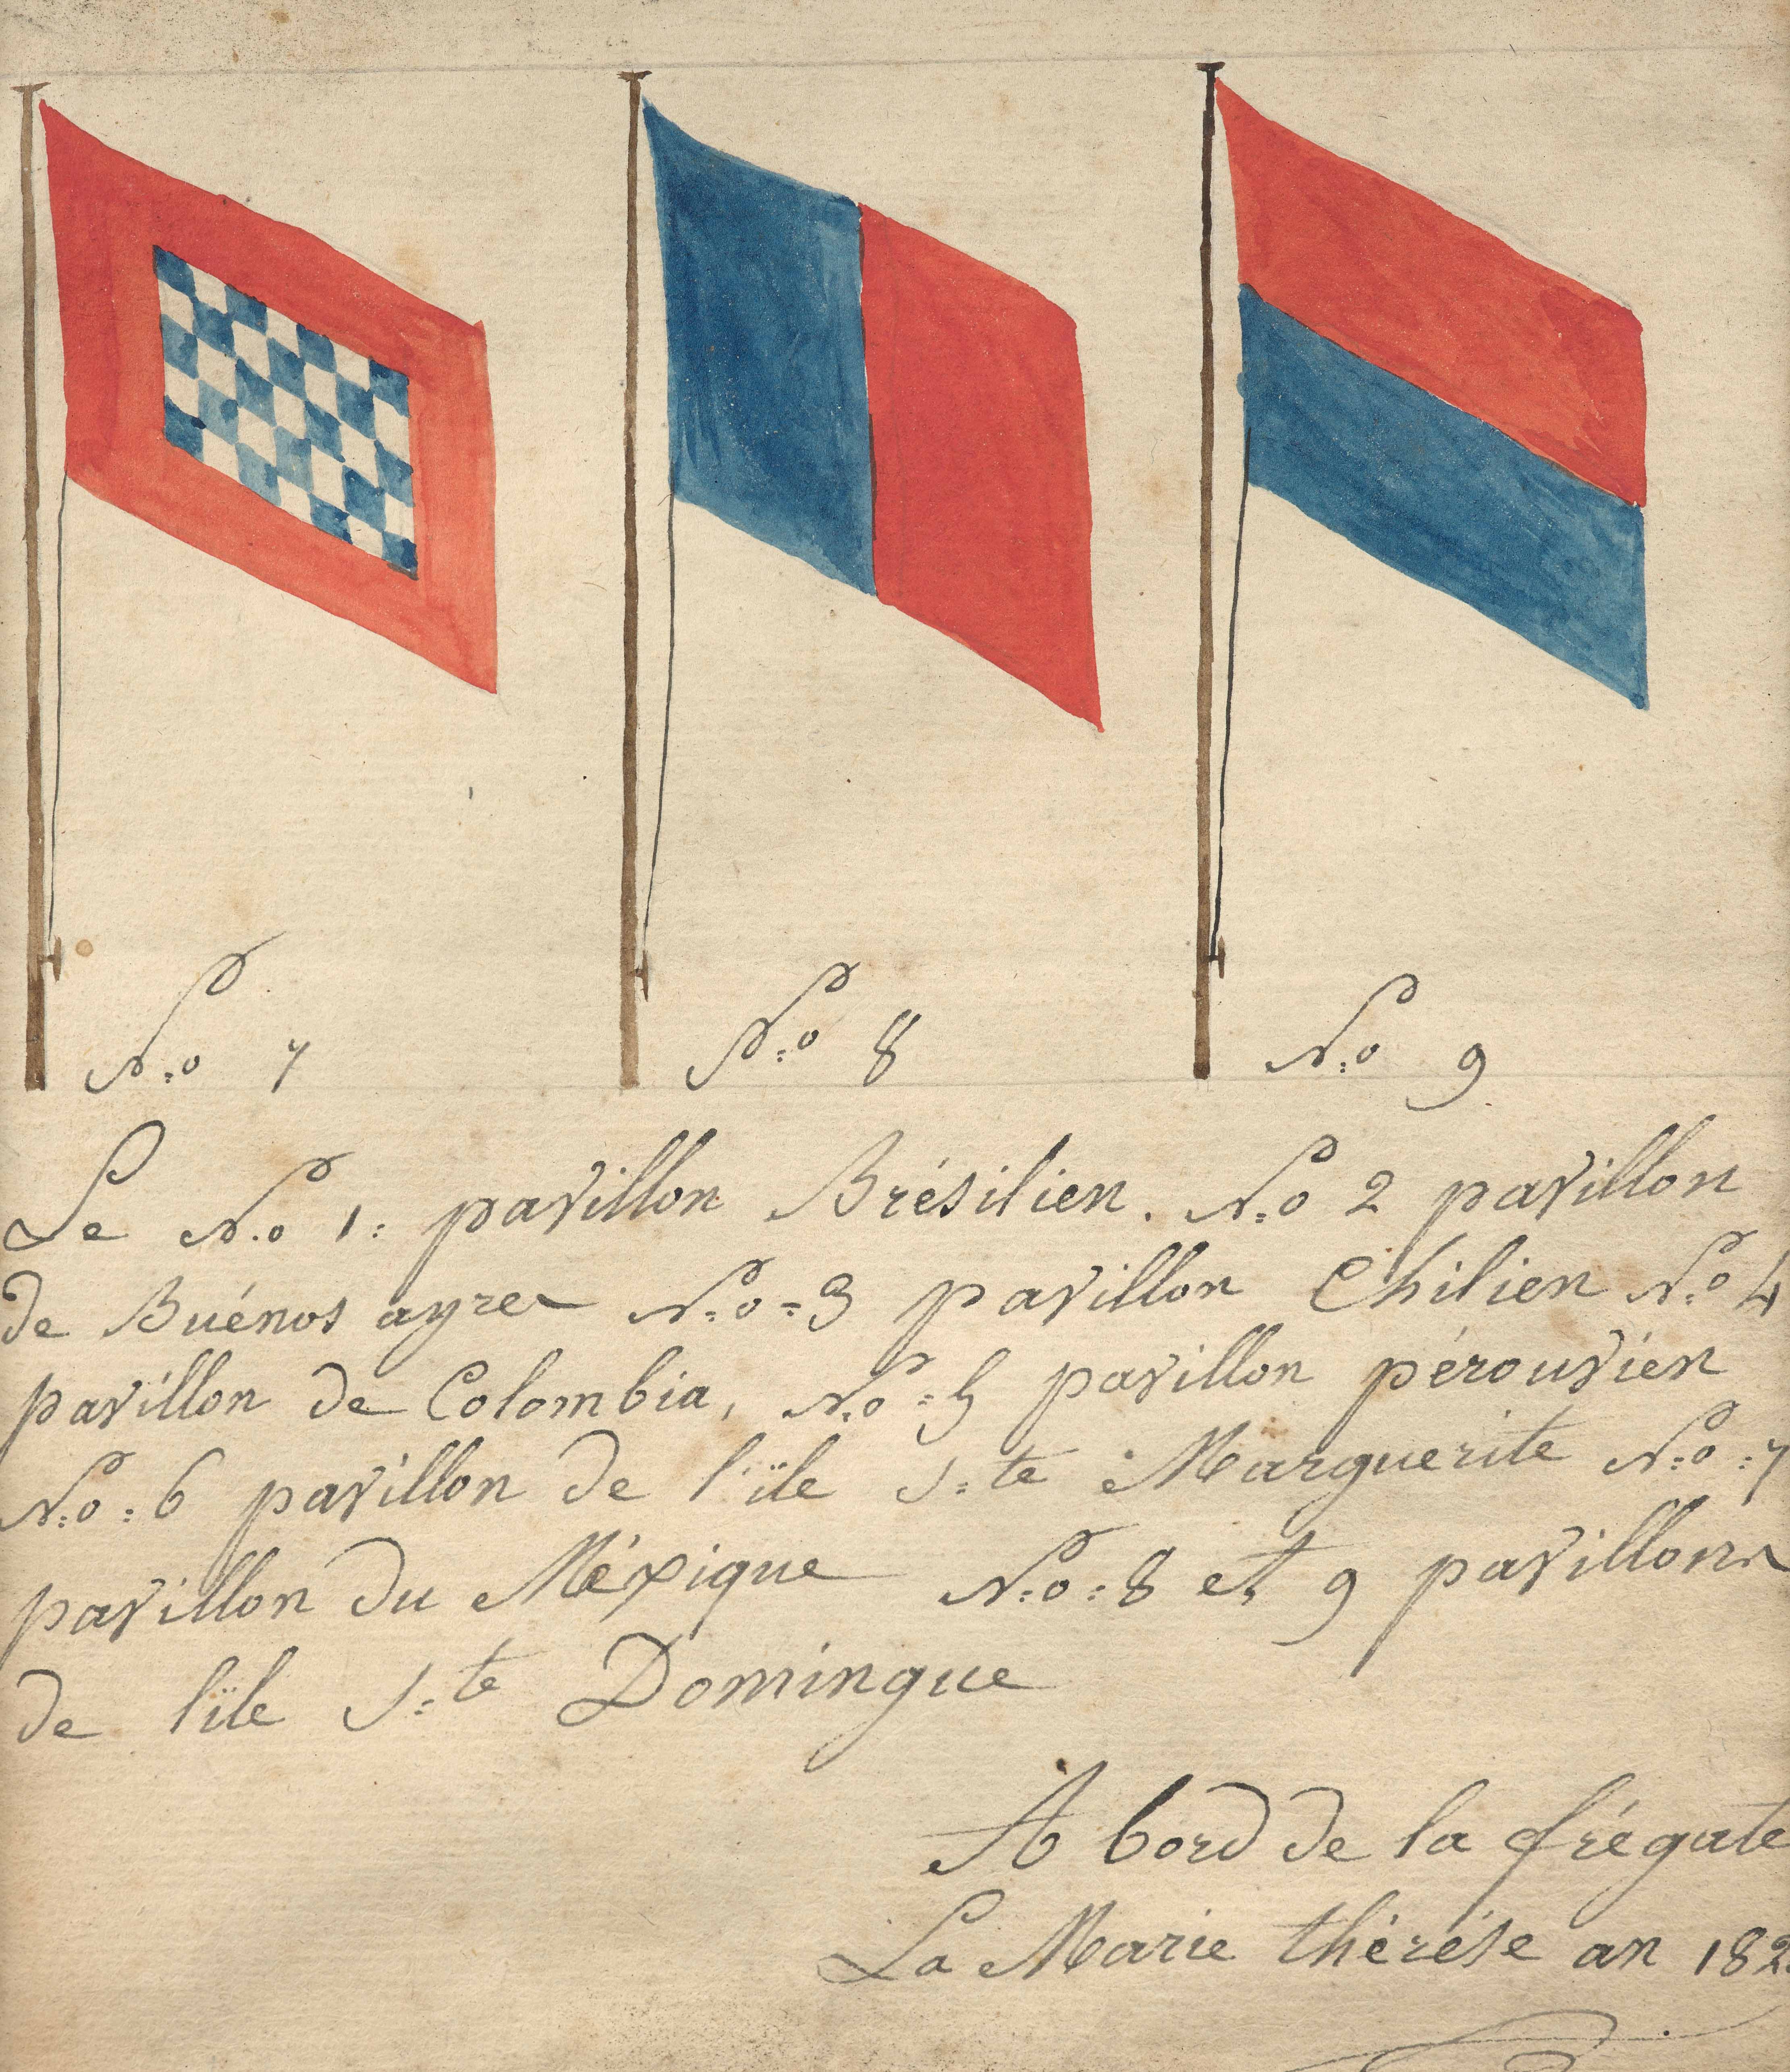 N.o 7
N.o 8
N.o 9
Le N.o 1: pavillon Brésilien. N.o 2 pavillon
de Buénos ayres N.o=3 pavillon Chilien N.o 4
pavillon de Colombia, N.o=5 pavillon pérouvien
N.o:6 pavillon de l'ïle S:te Marguerite N.o:7
pavillon du Méxique N.o:8 et 9 pavillons
de lïle S:te Domingue
A bord de la frégate
La Marie thérése an